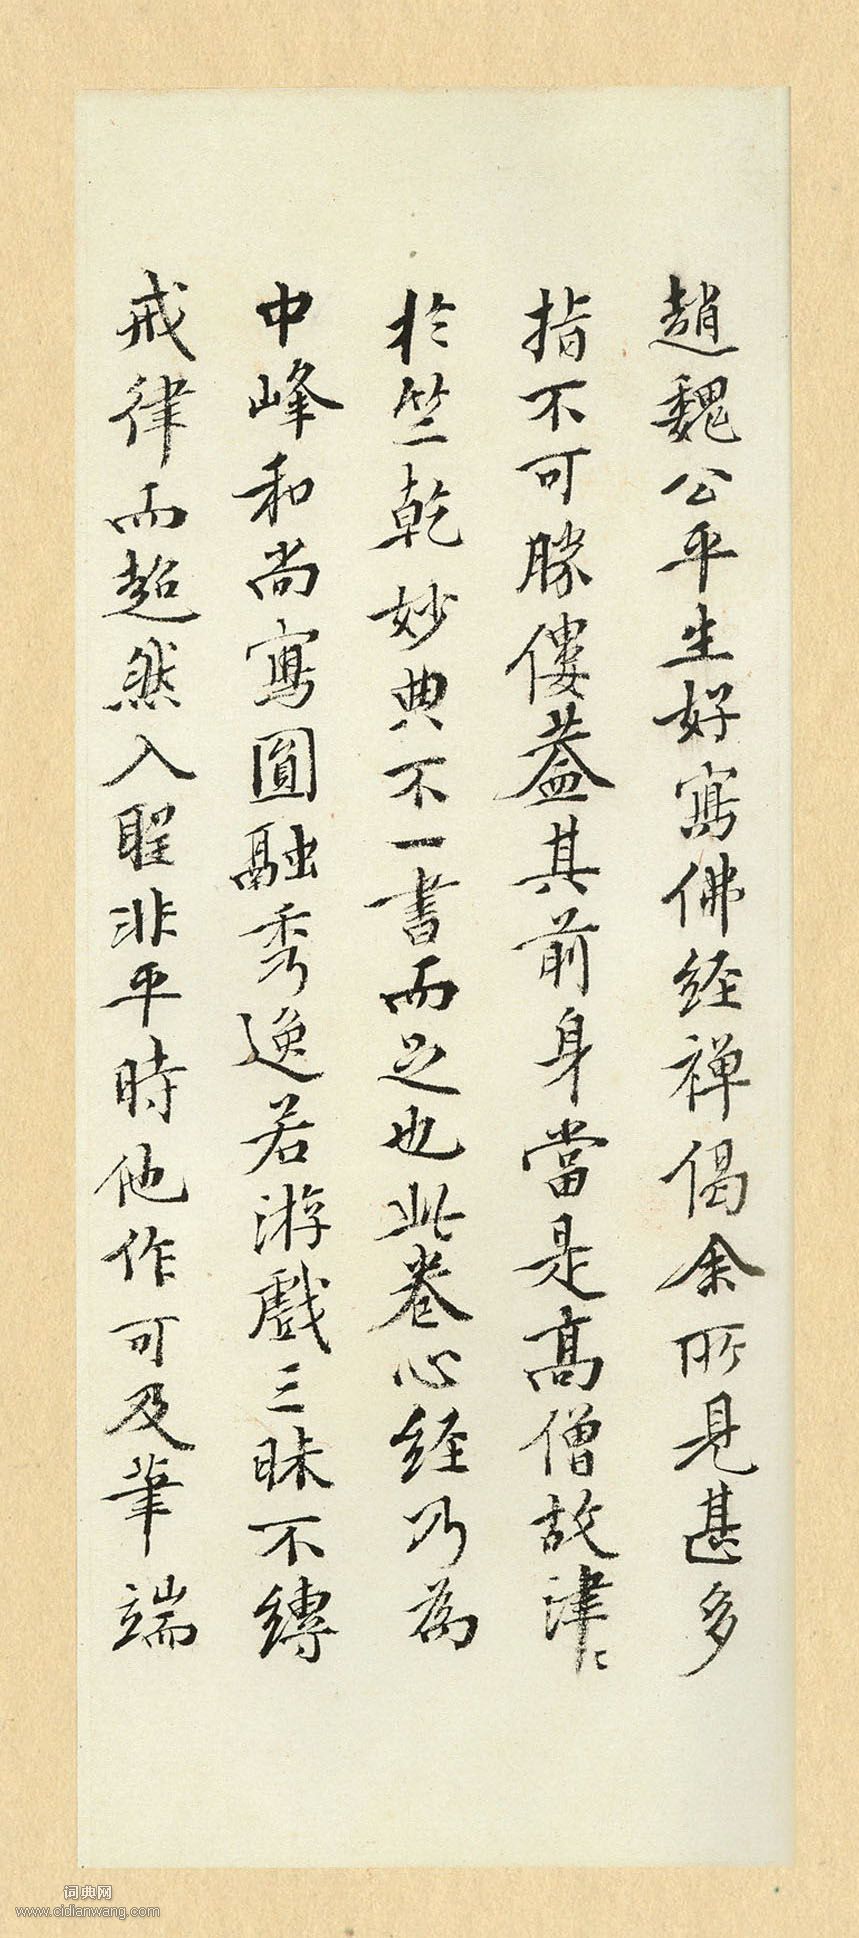 趙魏公平生好寫佛經禅偈余所見甚多
指不可勝僂蓋其前身當是高僧故津〻
於竺乾妙典不一書而足也此卷心経乃為
中峰和尚寫圓融秀逸若游戲三昧不縛
戒律而超然入聖非平時他作可及筆端
词典网
www.cidianwang.com